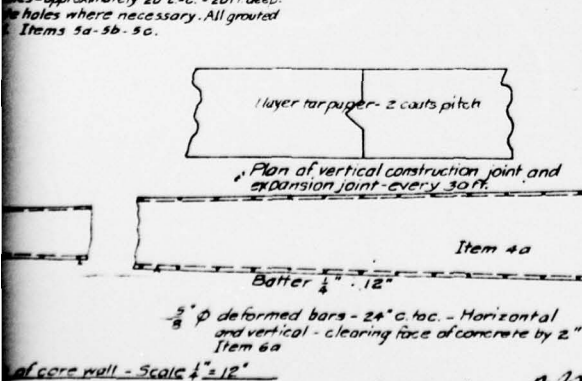 approximately 20' c.-c. - 20ft. deep.
holes where necessary. All grouted
Items 5a-5b-5c.
1 layer tar paper - 2 coats pitch
Plan of vertical construction joint and
expansion joint - every 30 ft.
Item 4a
Batter 1/4" · 12"
5/8" Φ deformed bars - 24" c. to c. - Horizontal
and vertical - clearing face of concrete by 2"
Item 6a
of core wall - Scale 1/4" = 12"